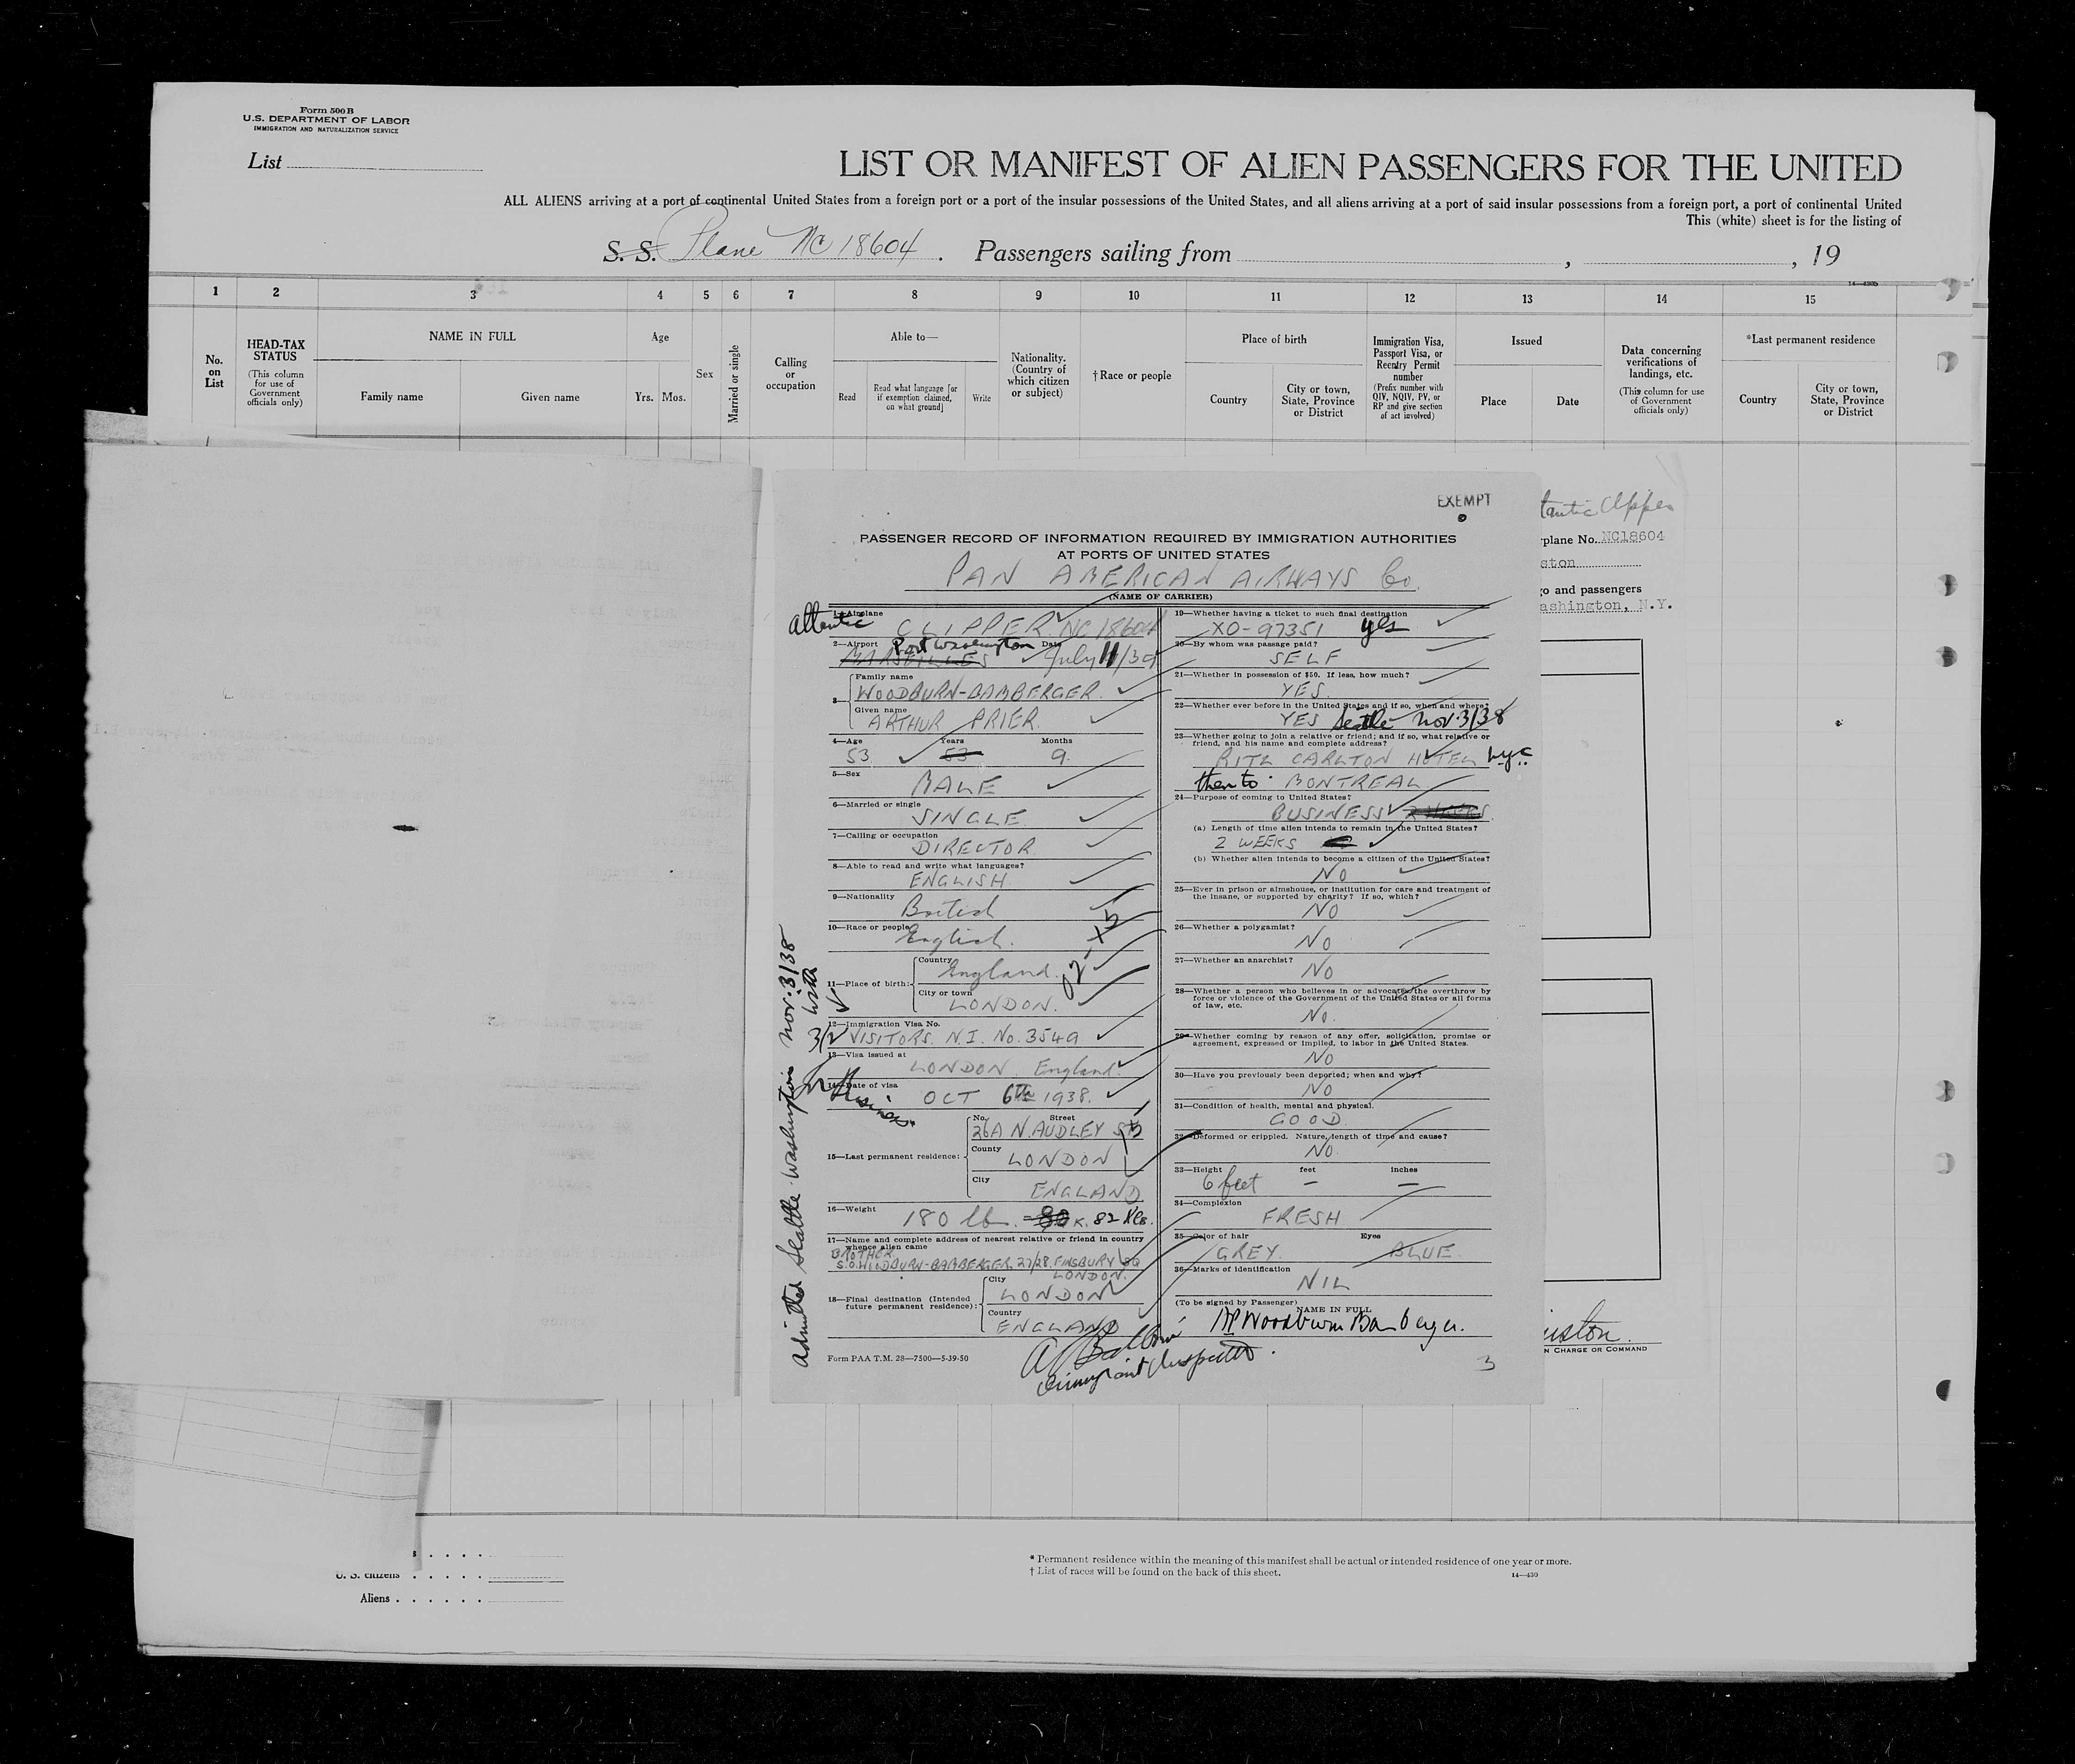 Form 500 B
U.S. DEPARTMENT OF LABOR
IMMIGRATION AND NATURALIZATION SERVICE
List
LIST OR MANIFEST OF ALIEN PASSENGERS FOR THE UNITED
ALL ALIENS arriving at a port of continental United States from a foreign port or a port of the insular possessions of the United States, and all aliens arriving at a port of said insular possessions from a foreign port, a port of continental United
This (white) sheet is for the listing of
S. S. Plane NC 18604. Passengers sailing from , , 19
14—430B
1 2 3 4 5 6 7 8 9 10 11 12 13 14 15
No. on List
HEAD-TAX STATUS
(This column for use of Government officials only)
NAME IN FULL
Family name
Given name
Age
Yrs. Mos.
Sex
Married or single
Calling or occupation
Able to—
Read
Read what language [or if exemption claimed, on what ground]
Write
Nationality. (Country of which citizen or subject)
†Race or people
Place of birth
Country
City or town, State, Province or District
Immigration Visa, Passport Visa, or Reentry Permit number
(Prefix number with QIV, NQIV, PV, or RP and give section of act involved)
Issued
Place
Date
Data concerning verifications of landings, etc.
(This column for use of Government officials only)
*Last permanent residence
Country
City or town, State, Province or District
EXEMPT
PASSENGER RECORD OF INFORMATION REQUIRED BY IMMIGRATION AUTHORITIES
AT PORTS OF UNITED STATES
PAN AMERICAN AIRWAYS Co.
(NAME OF CARRIER)
1—Airplane
Atlantic CLIPPER NC 18604
2—Airport Port Washington Date
MARSEILLES July 11/39
3—
Family name
WOODBURN-BAMBERGER
Given name
ARTHUR PRIER
4—Age Years Months
53 53 9
5—Sex
MALE
6—Married or single
SINGLE
7—Calling or occupation
DIRECTOR
8—Able to read and write what languages?
ENGLISH
9—Nationality
British
10—Race or people
English.
11—Place of birth:
Country
England.
City or town
LONDON.
12—Immigration Visa No.
3/2 VISITORS. N.I. No. 3549
13—Visa issued at
LONDON. England.
14—Date of visa
Business OCT 6th 1938.
15—Last permanent residence:
No. Street
26A N. AUDLEY ST
County
LONDON
City
ENGLAND
16—Weight
180 lb. = 80 K. 82 Kls.
17—Name and complete address of nearest relative or friend in country whence alien came
BROTHER
S.O. WOODBURN-BAMBERGER, 27/28. FINSBURY SQ
LONDON.
18—Final destination (Intended future permanent residence):
City
LONDON
Country
ENGLAND
Form PAA T.M. 28—7500—5-39-50
Immigrant Inspector.
Admitted Seattle Washington Nov. 3/38
19—Whether having a ticket to such final destination
XO-97351 yes
20—By whom was passage paid?
SELF
21—Whether in possession of $50. If less, how much?
YES.
22—Whether ever before in the United States and if so, when and where?
YES Seattle Nov. 3/38
23—Whether going to join a relative or friend; and if so, what relative or friend, and his name and complete address?
RITZ CARLTON HOTEL N.Y.C.
then to MONTREAL
24—Purpose of coming to United States?
BUSINESS
(a) Length of time alien intends to remain in the United States?
2 WEEKS
(b) Whether alien intends to become a citizen of the United States?
NO
25—Ever in prison or almshouse, or institution for care and treatment of the insane, or supported by charity? If so, which?
NO
26—Whether a polygamist?
NO
27—Whether an anarchist?
NO
28—Whether a person who believes in or advocates the overthrow by force or violence of the Government of the United States or all forms of law, etc.
NO.
29—Whether coming by reason of any offer, solicitation, promise or agreement, expressed or implied, to labor in the United States.
NO
30—Have you previously been deported; when and why?
NO
31—Condition of health, mental and physical.
GOOD.
32—Deformed or crippled. Nature, length of time and cause?
NO.
33—Height feet inches
6 feet — —
34—Complexion
FRESH
35—Color of hair Eyes
GREY. BLUE.
36—Marks of identification
NIL
(To be signed by Passenger)
NAME IN FULL
AP Woodburn Bamberger.
3
tlantic Clipper
rplane No. NC18604
ston
go and passengers
ashington, N.Y.
N CHARGE OR COMMAND
U. S. citizens
Aliens
* Permanent residence within the meaning of this manifest shall be actual or intended residence of one year or more.
† List of races will be found on the back of this sheet.
14—430